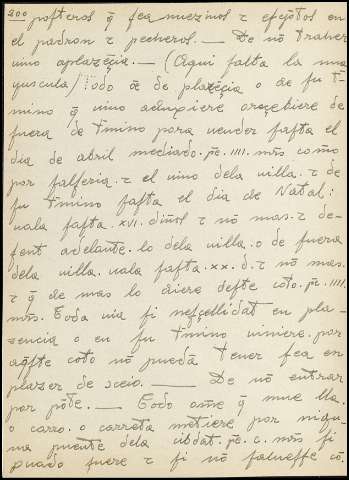 200 postteros q̄ sea muezinos τ efeiotos en
el padron τ pecheros. — De nō traher
uino aplazēçia. — (Aqui falta la ma
yuscula) Todo ōe de plazēçia o de su t̄-
mino q̄ uino aduxiere oreçebiere de
fuera de t̄mino pora uender fasta el
dia de abril mediado. pē. IIII. mr̄s como
por falseria. τ el uino dela uilla. τ de
su t̄mino fasta el dia de Natal:
uala fasta. XVI. diñol τ nō mas. τ de-
sent adelante. lo dela uilla. o de fuera
dela uilla. uala fasta. XX. d. τ nō mas.
τ q̄ de mas lo diere deste coto. pē. IIII.
mr̄s. Toda uia si nesçessidat en pla-
sencia o en su t̄mino uiniere. por
aq̄ste coto nō pueda tener sea en
plazer de sceio. — De nō entrar
por pōte. — Todo ōme q̄ mue lla.
o carro. o carreta metiere por nigu-
na puente dela cibdat. pē. c. mr̄s si
puado fuere τ si nō saluesse cō.